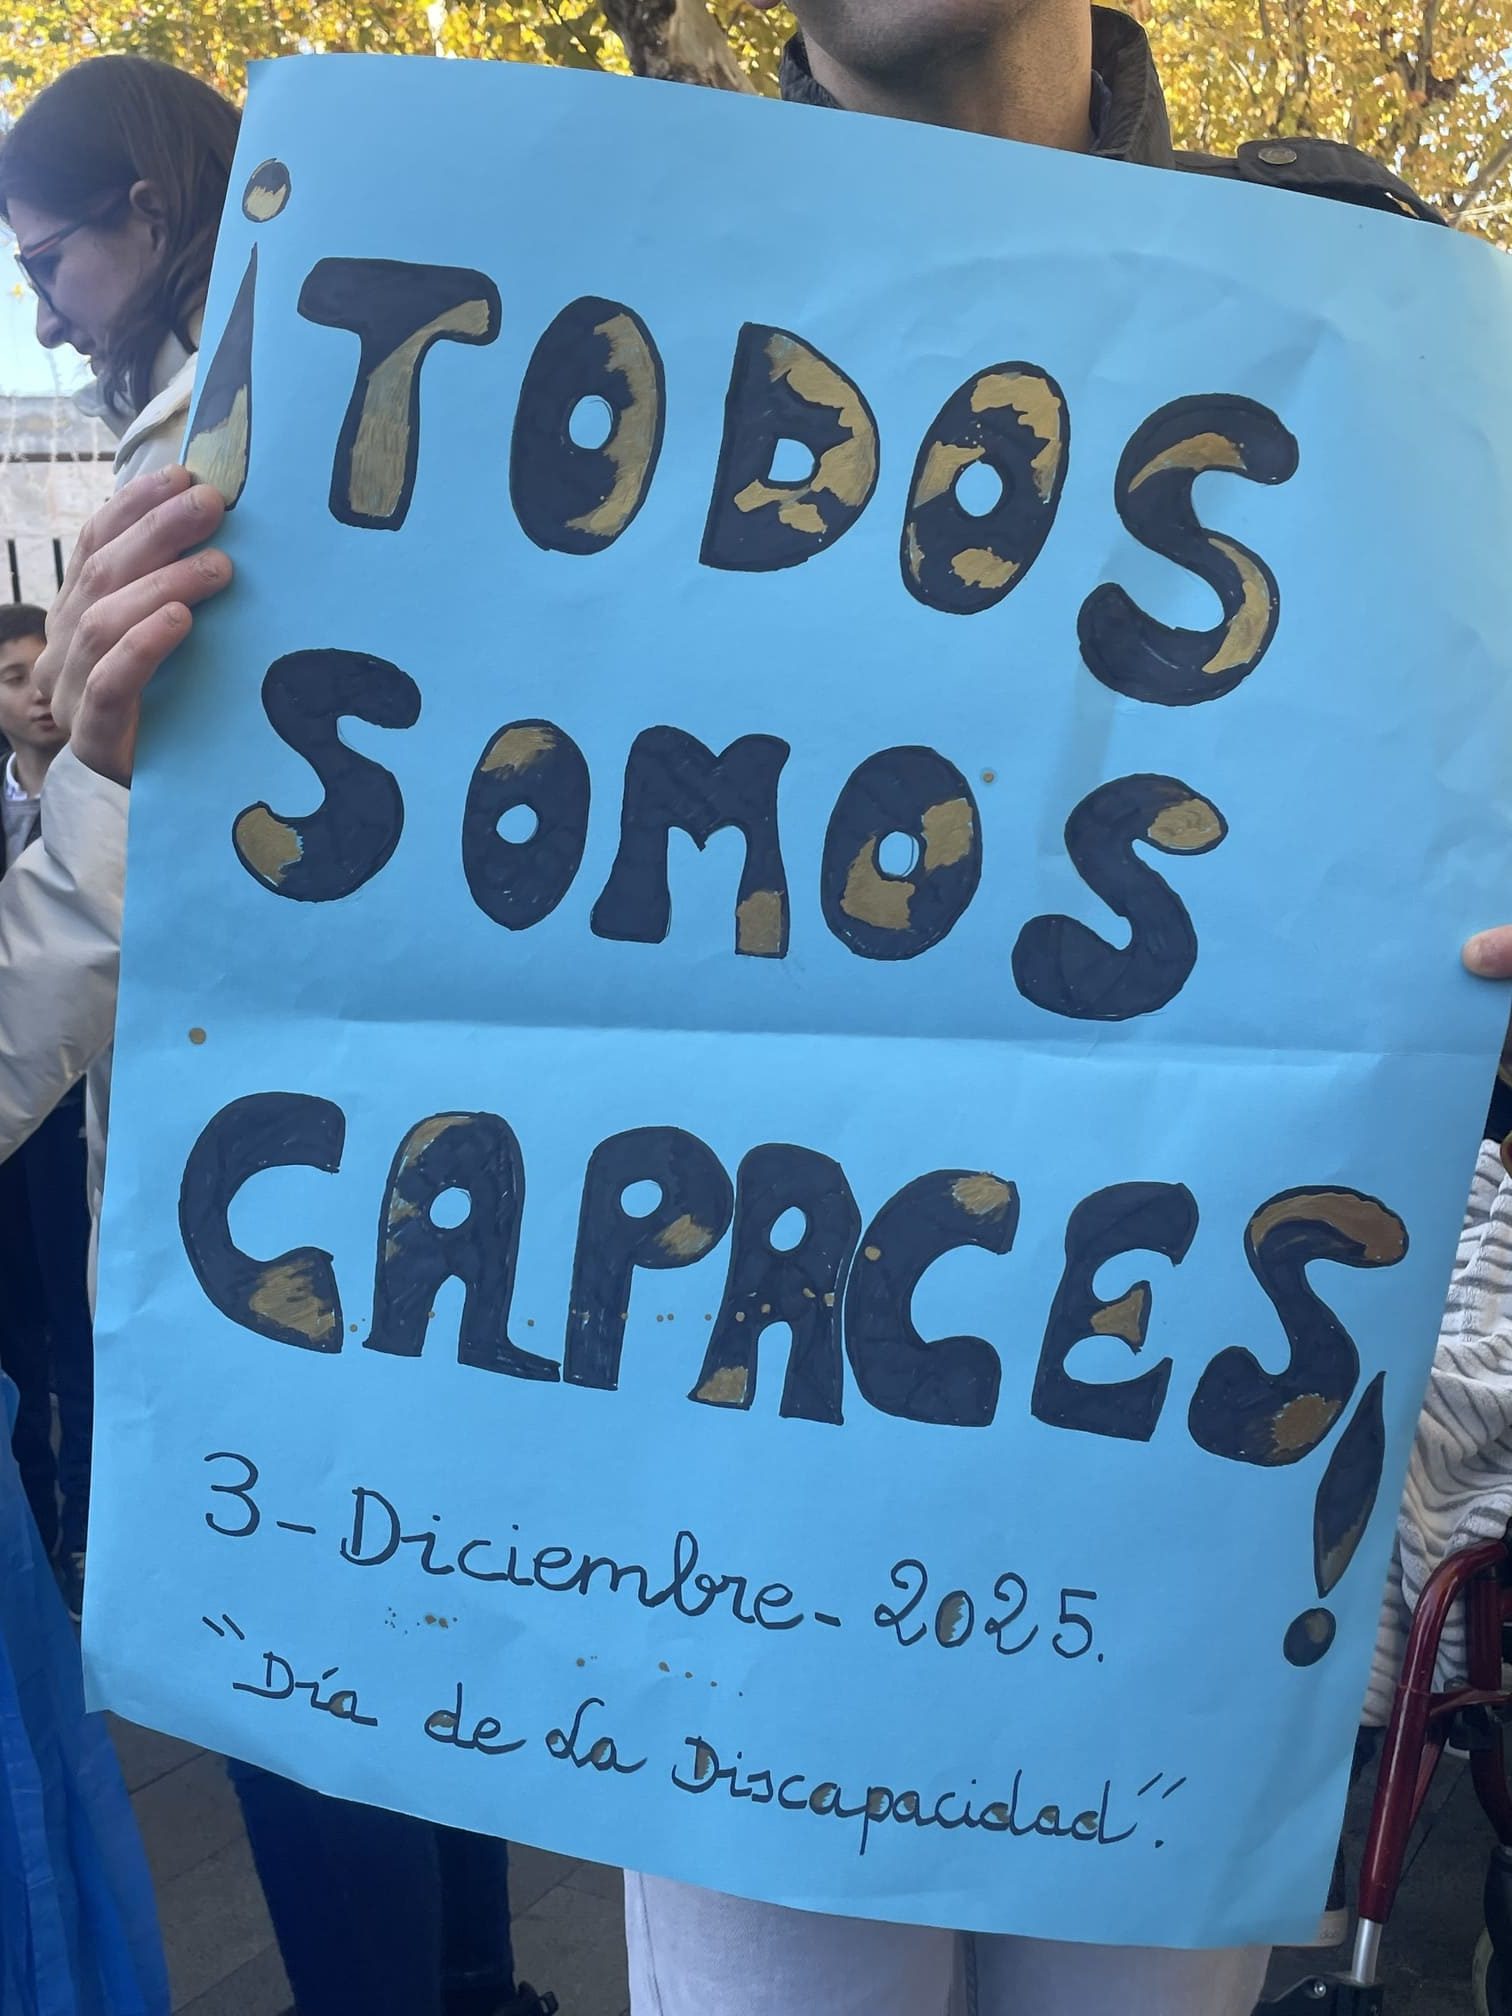 ¡TODOS
SOMOS
CAPACES!
3-Diciembre-2025.
"Día de La Discapacidad".